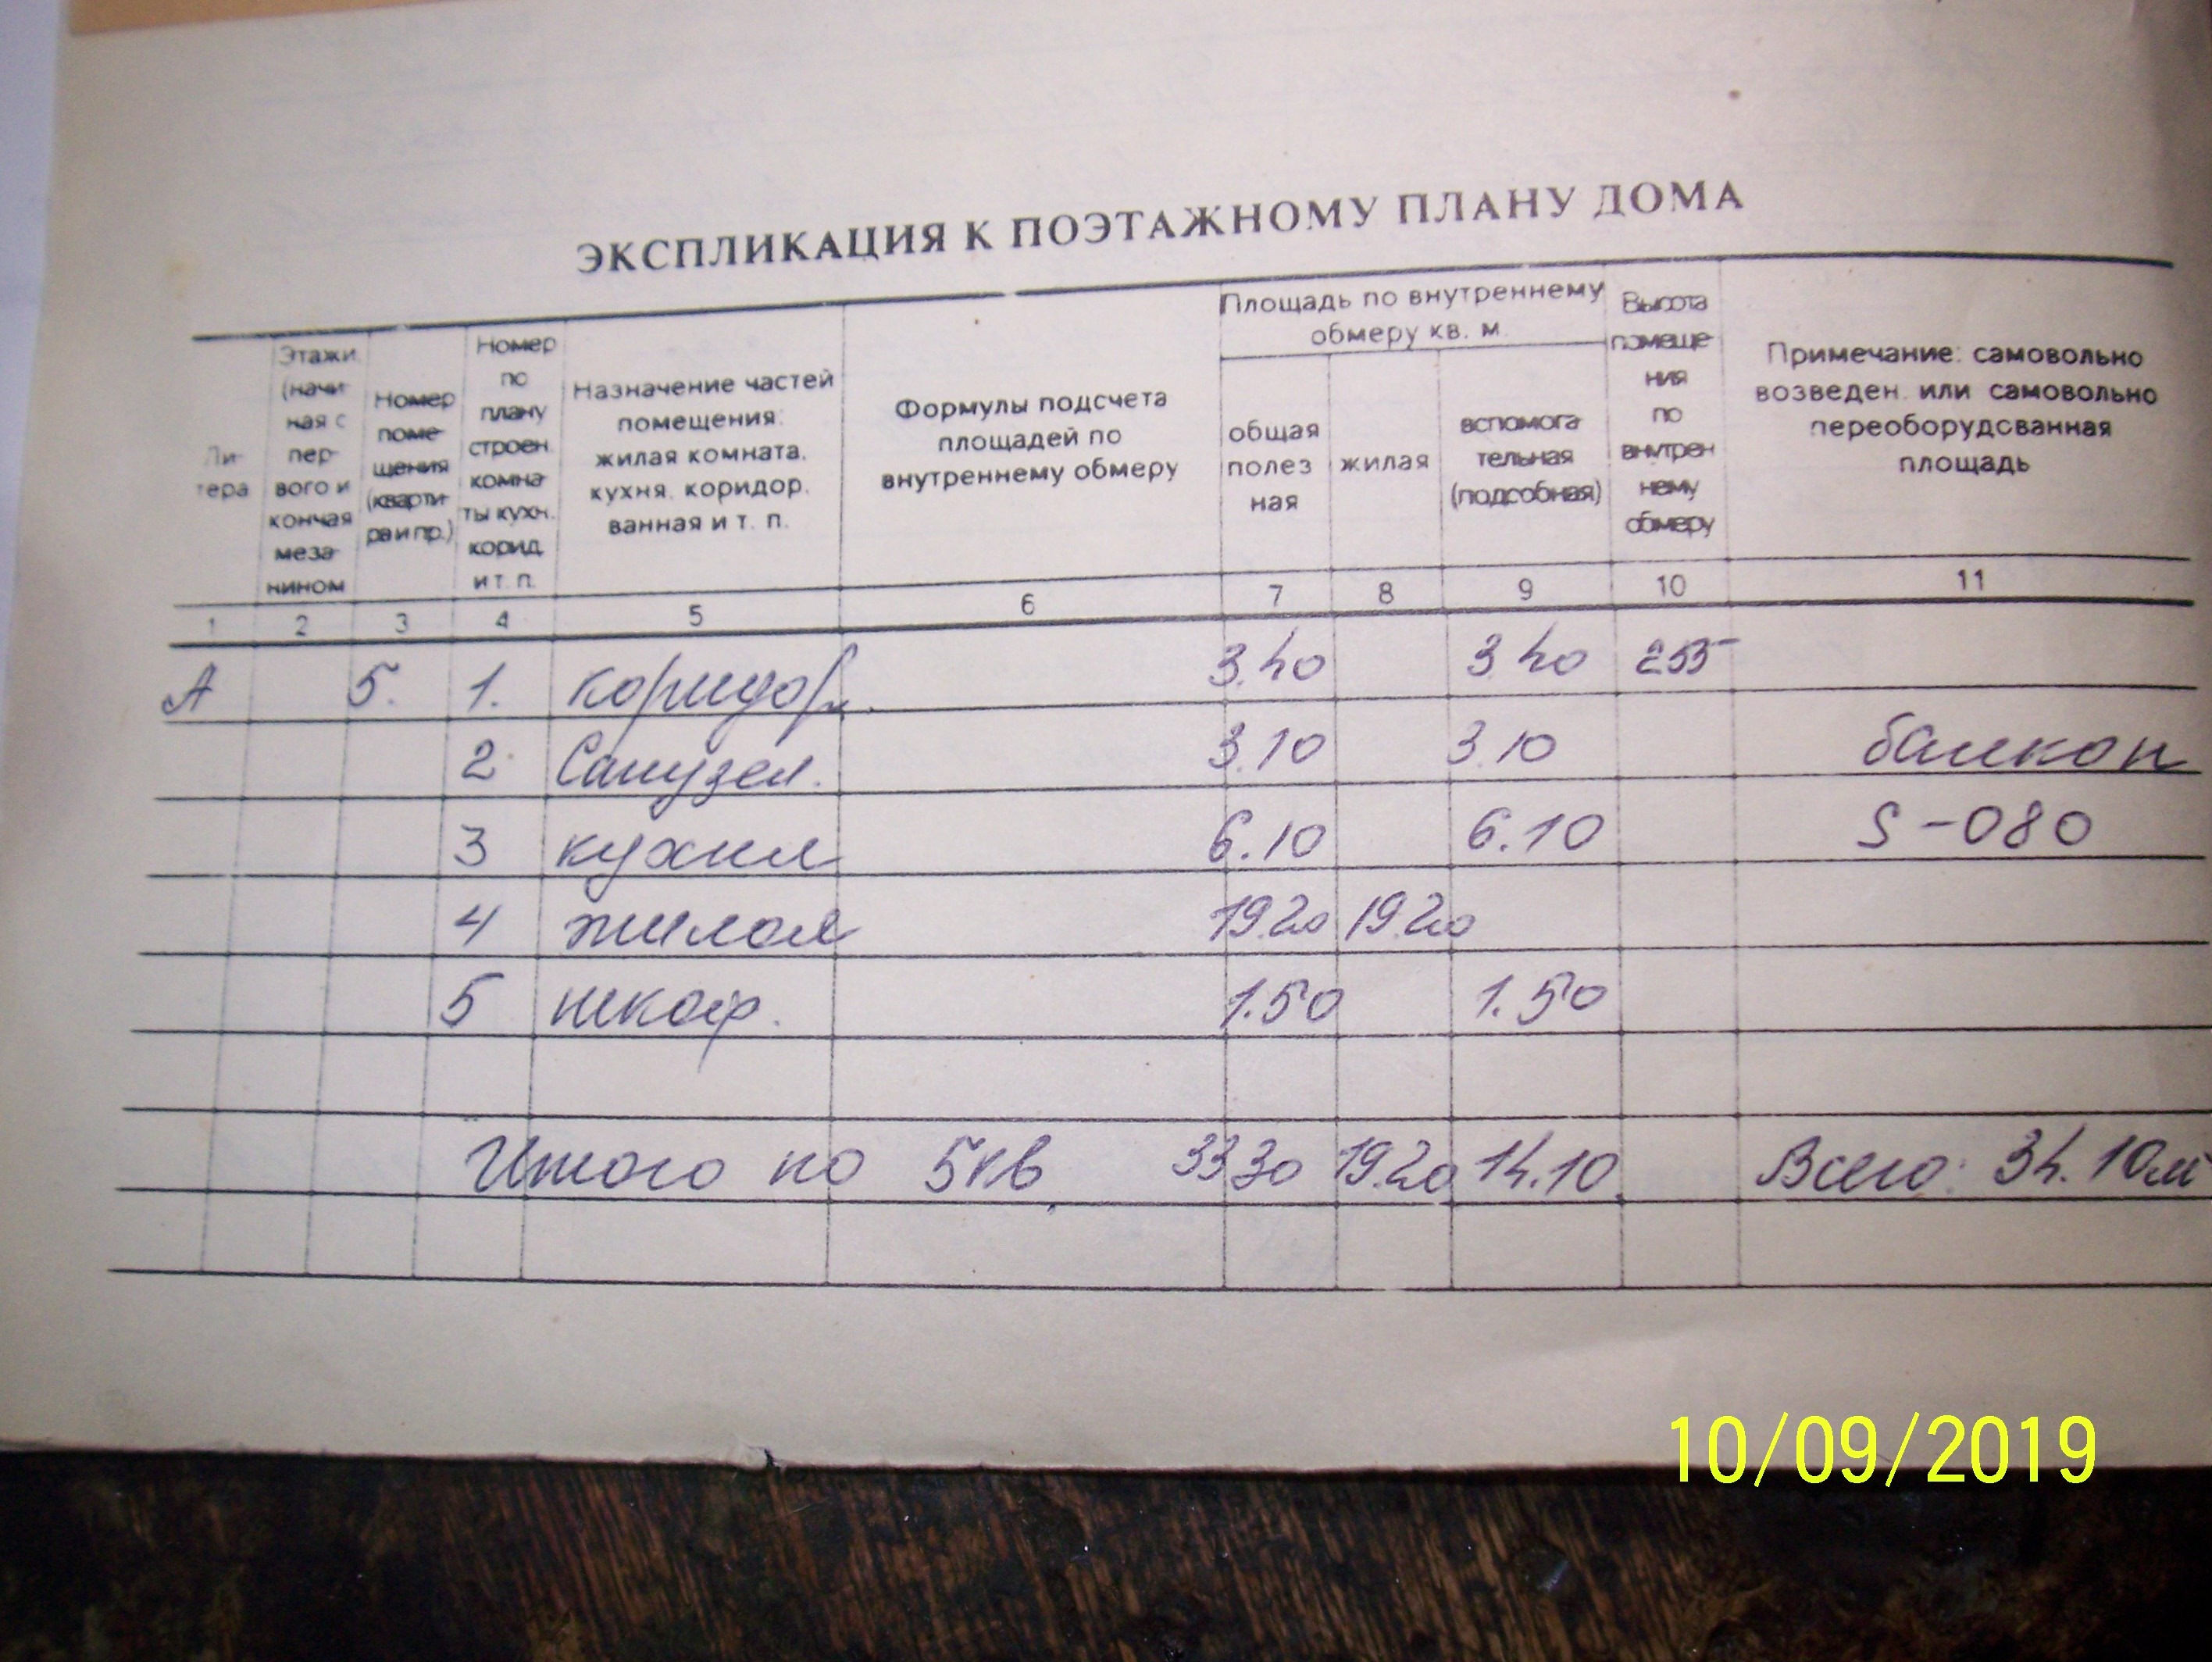 ЭКСПЛИКАЦИЯ К ПОЭТАЖНОМУ ПЛАНУ ДОМА
Ли-
тера
Этажи
(начи-
ная с
пер-
вого и
кончая
меза-
нином
Номер
поме-
щения
(кварти-
ра и пр.)
Номер
по
плану
строен.
комна-
ты кухн.
корид.
и т. п.
Назначение частей
помещения:
жилая комната,
кухня, коридор,
ванная и т. п.
Формулы подсчета
площадей по
внутреннему обмеру
Площадь по внутреннему
обмеру кв. м.
общая
полез
ная
жилая
вспомога-
тельная
(подсобная)
Высота
помеще-
ния
по
внутрен-
нему
обмеру
Примечание: самовольно
возведен. или самовольно
переоборудованная
площадь
1 2 3 4 5 6 7 8 9 10 11
А 5. 1. коридор. 3.40 3 40 255
2 Санузел. 3.10 3.10 балкон
3 кухня 6.10 6.10 S-080
4 жилая 19.20 19.20
5 шкаф. 1.50 1.50
Итого по 5 кв 33 30 19.20 14.10 Всего: 34.10м
10/09/2019